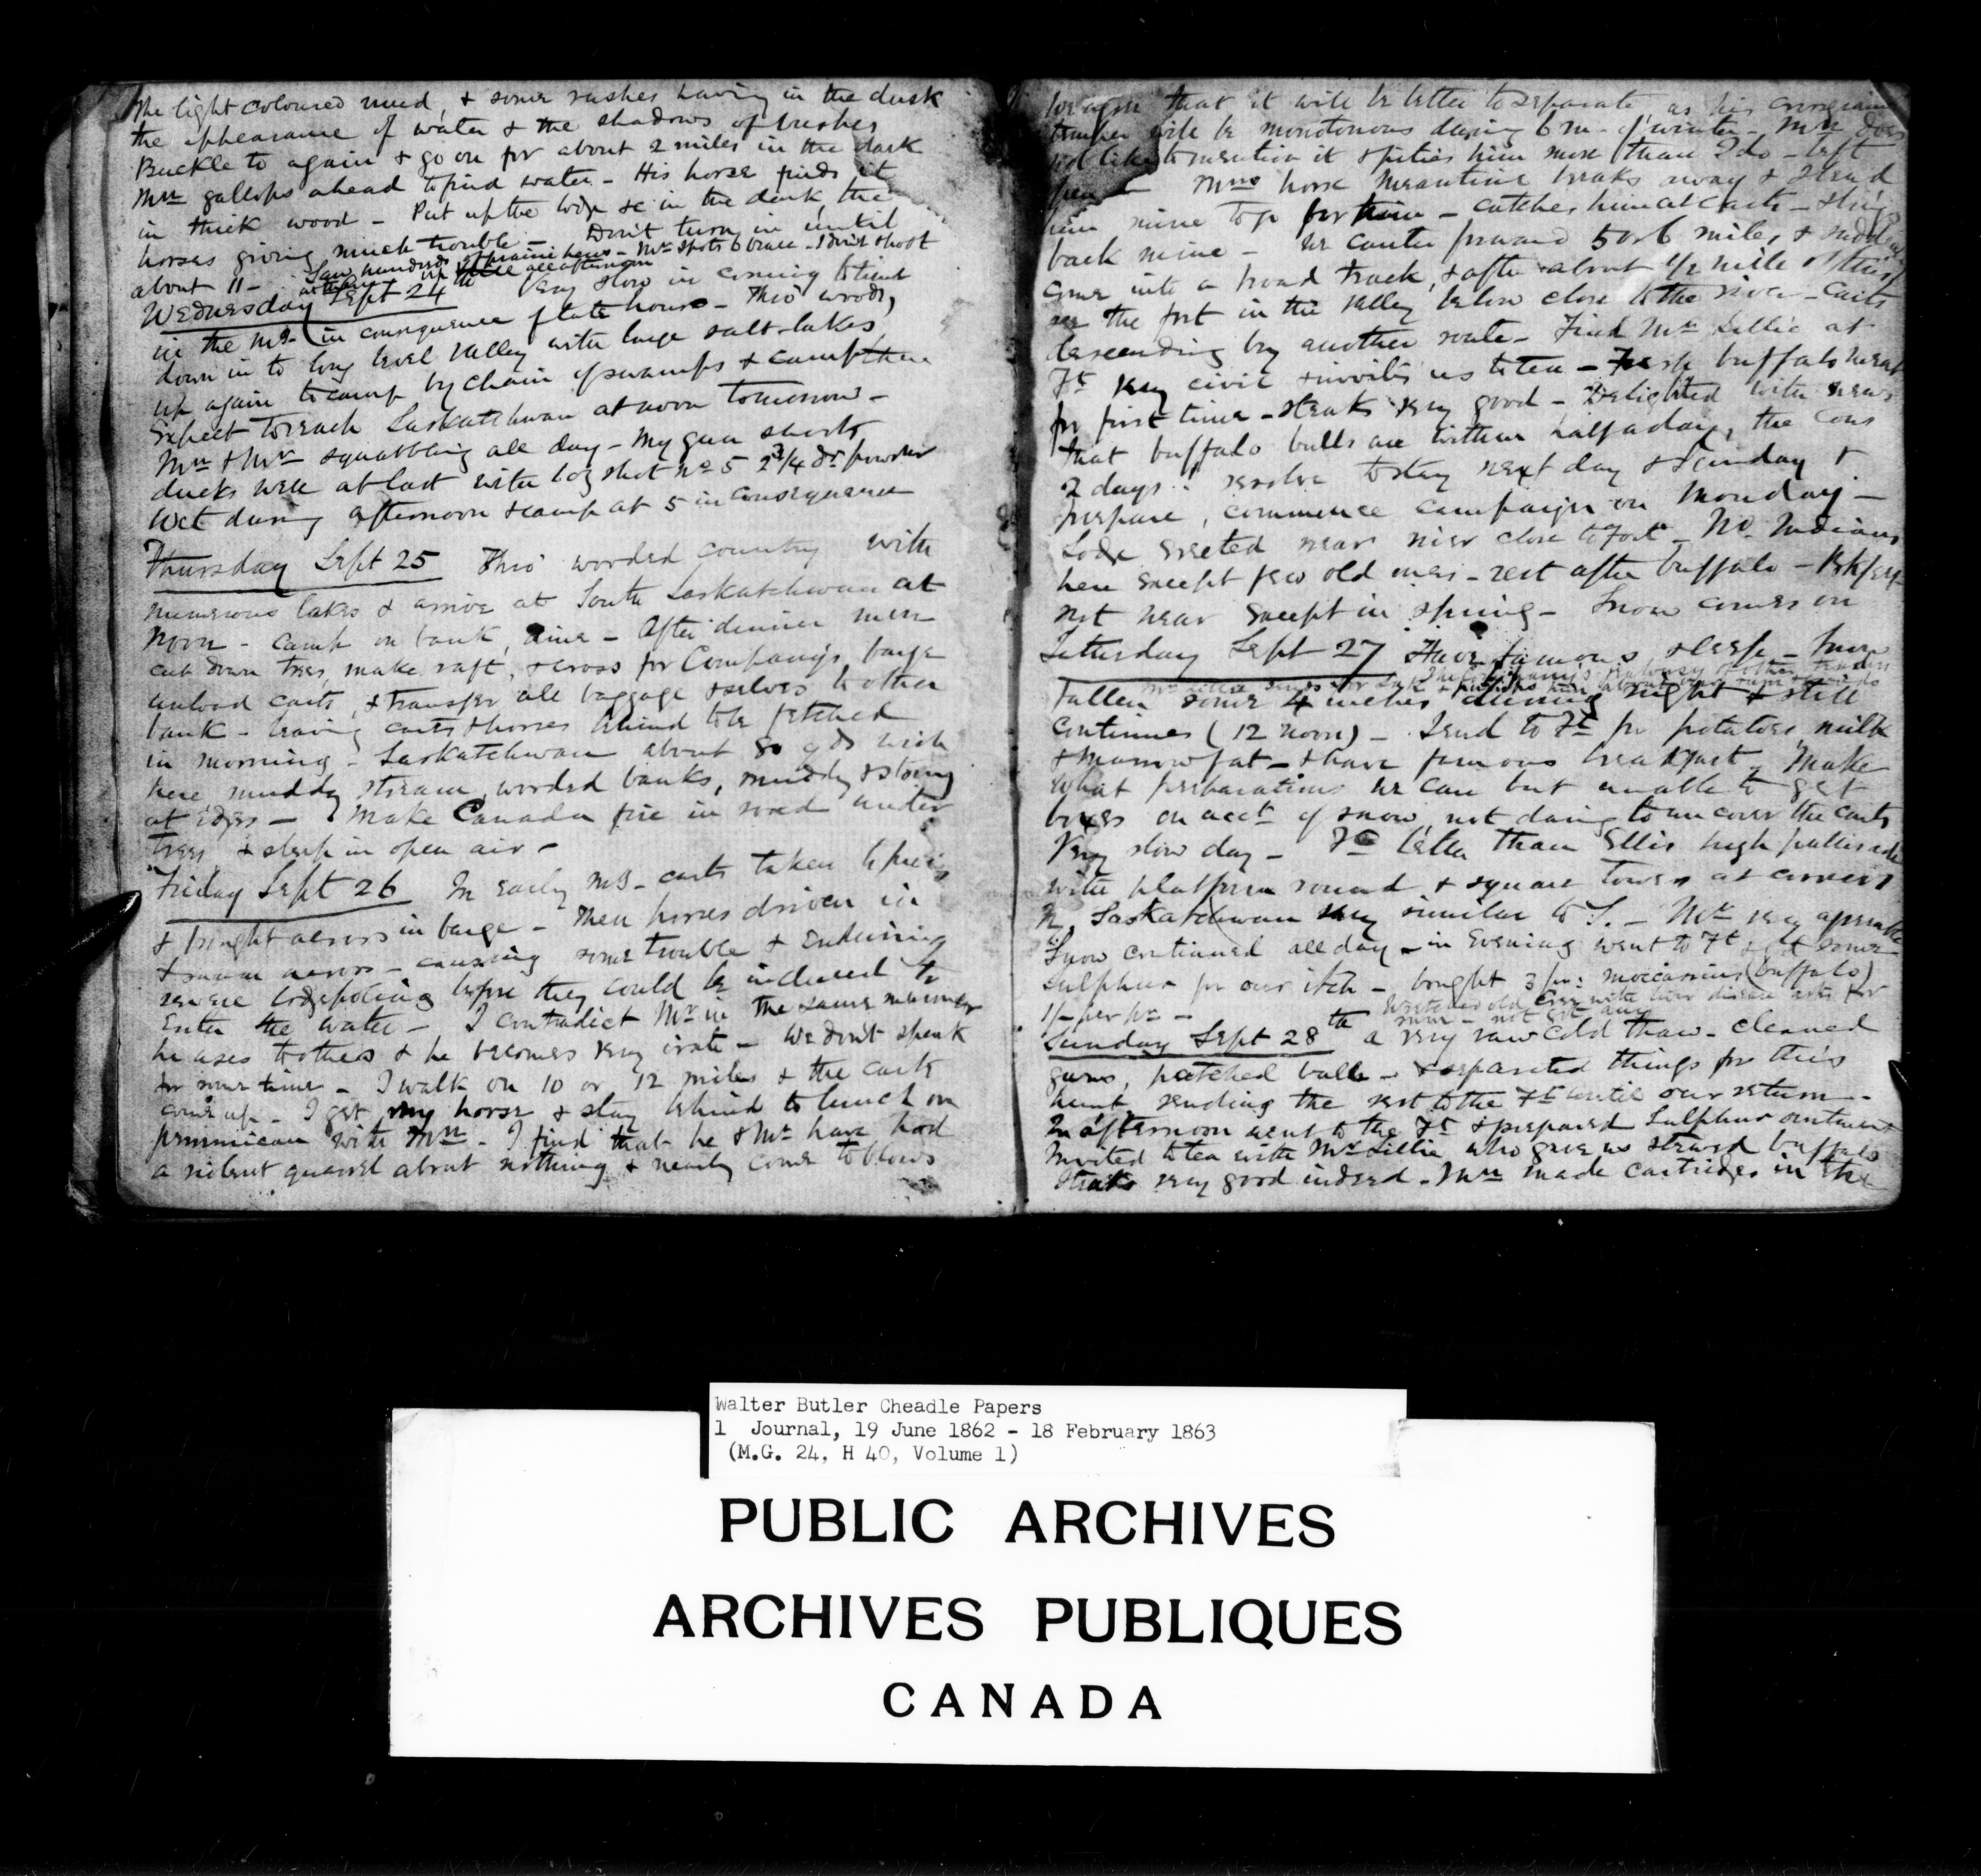 The light coloured mud, & some rushes having in the dusk
the appearance of water & the shadows of bushes
Buckle to again & go on for about 2 miles in the dark
Mn gallops ahead to find water - His horse finds it
in thick wood - Put up the lodge &c in the dark, the
horses giving much trouble - Don't turn in until
about 11 - Saw hundreds of prairie hens - Mr shoots 6 brace - I don't shoot
all afternoon
Wednesday Sept 24th Very slow in coming to time
in the Mg. in consequence of late hours - Thro' woods,
down in to long level valley with large salt-lakes,
up again to camp by chain of swamps & camp there
Expect to reach Saskatchwan at noon tomorrow -
Mn & Mr squabbling all day - My gun shoots
ducks well at last with 1 oz shot No 5 2 3/4 dr powder
Wet during afternoon & camp at 5 in consequence
Thursday Sept 25 Thro' wooded country with
numerous lakes & arrive at South Saskatchwan at
noon - camp on bank, dine - After dinner men
cut down trees, make raft, & cross for Company's barge
unload carts, & transfer all baggage & selves to other
bank - leaving carts & horses behind to be fetched
in morning - Saskatchwan about 80 yds wide
here, muddy stream, wooded banks, muddy & stony
at edges - Make Canada fire in road under
trees & sleep in open air -
Friday Sept 26 In early Mg - carts taken to pieces
& brought across in barge - Then horses driven in
& swam across - causing some trouble & enduring
severe lodgepoling before they could be induced to
enter the water - I contradict Mr in the same manner
he uses to others & he becomes very irate - We don't speak
for some time - I walk on 10 or 12 miles & the carts
come up - I get my horse & stay behind to lunch on
pemmican with Mn - I find that he & Mr have had
a violent quarrel about nothing & nearly come to blows
we agree that it will be better to separate as his
temper will be monotonous during 6 m. of winter - Mn does
not like to mention it & pities him more than I do - left
Mns horse meantime breaks away & I lend
him mine to go for him - catches him at carts - & brings
back mine - We canter forward 5 or 6 miles, & suddenly
come into a broad track, & after about 1/2 mile of this
see the fort in the valley below close to the river - Carts
descending by another route - Find Mr Lillie at
Ft very civil & invites us to tea - Fresh buffalo meat
for first time - steaks very good - Delighted with news
that buffalo bulls are within half a day, the cows
2 days: resolve to stay next day & Sunday &
prepare, commence campaign on Monday -
Lodge erected near river close to Fort - No Indians
here except few old ones - rest after buffalo -
not near except in spring - Snow comes on
Satturday Sept 27 Have famous sleep - Snow
fallen some 4 inches during night & still
continues (12 noon) - Send to Ft for potatoes, milk
& marrow fat - & have famous breakfast. Make
what preparations we can but unable to get
boxes on acct of snow, not daring to uncover the carts
Very slow day - Ft better than Ellis high pallisade
with platform round & square towers at corners
N. Saskatchwan very similar to S. - Mr very agreeable
Snow continued all day - in Evening went to Ft & got some
sulphur for our itch - bought 3 prs: moccasins (buffalo)
1/- per pr -
rum - not got any
Sunday Sept 28th a very raw cold thaw - cleaned
guns, patched balls - & separated things for this
hunt sending the rest to the Ft until our return -
In afternoon went to the Ft & prepared Sulphur ointment
Invited to tea with Mr Lillie who gave us stewed buffalo
steaks very good indeed - Mn made cartridges in the
Walter Butler Cheadle Papers
1 Journal, 19 June 1862 - 18 February 1863
(M.G. 24, H 40, Volume 1)
PUBLIC ARCHIVES
ARCHIVES PUBLIQUES
CANADA